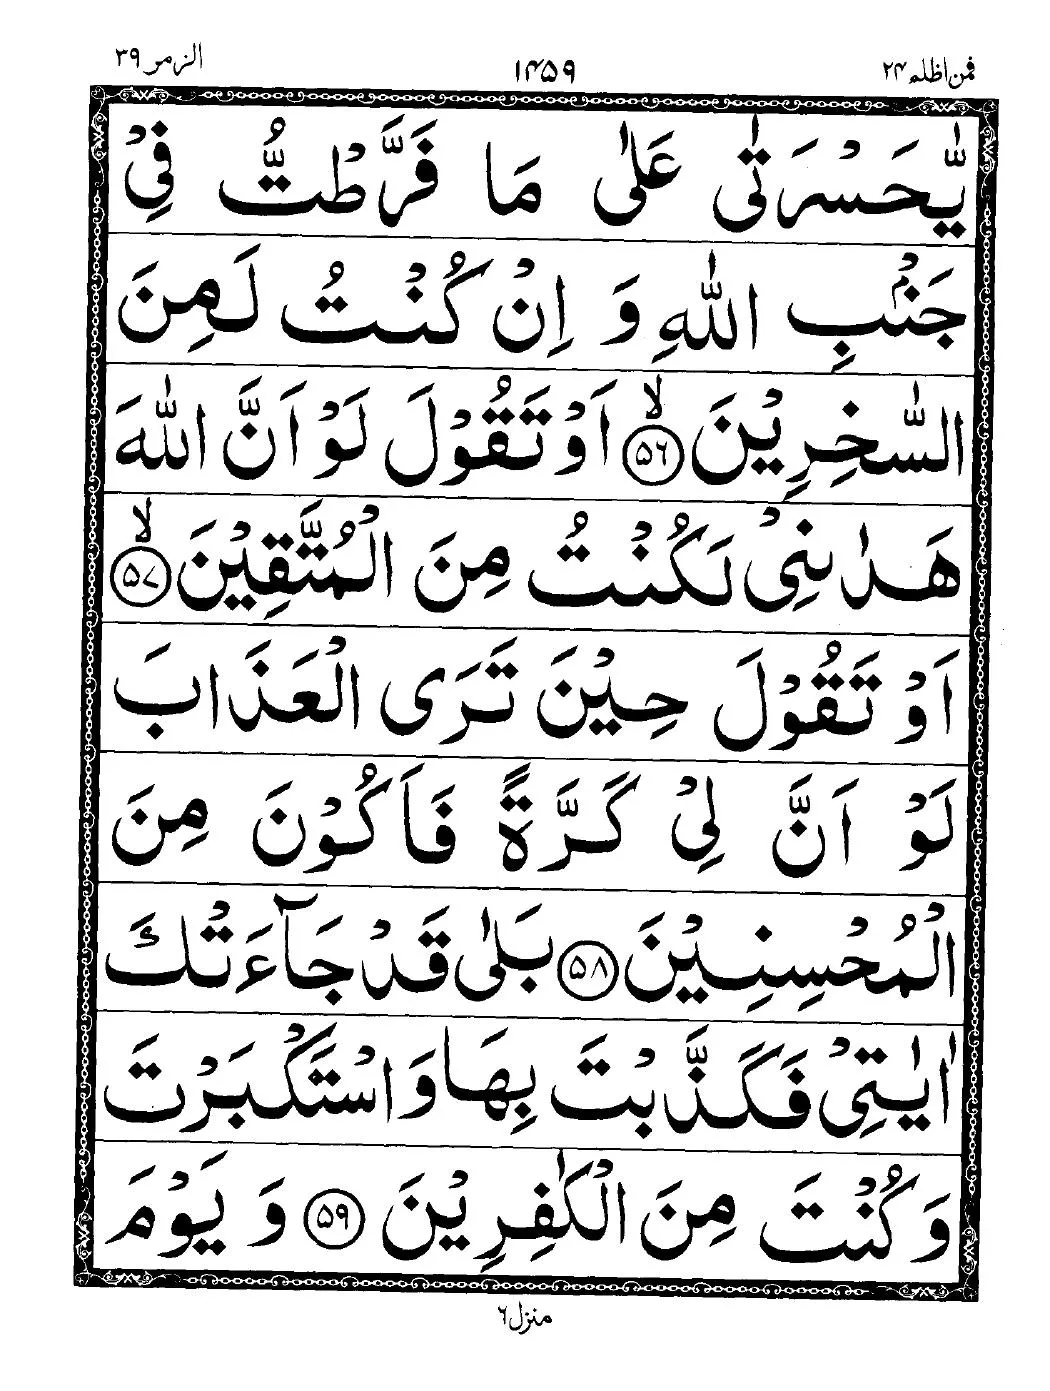 فمن اظلم ۲۴
۱۴۵۹
الزمر ۳۹
يّٰحَسْرَتٰى عَلٰى مَا فَرَّطْتُّ فِيْ
جَنْۢبِ اللّٰهِ وَ اِنْ كُنْتُ لَمِنَ
السّٰخِرِيْنَ ۙ﴿۵۶﴾ اَوْ تَقُوْلَ لَوْ اَنَّ اللّٰهَ
هَدٰىنِيْ لَكُنْتُ مِنَ الْمُتَّقِيْنَ ۙ﴿۵۷﴾
اَوْ تَقُوْلَ حِيْنَ تَرَى الْعَذَابَ
لَوْ اَنَّ لِيْ كَرَّةً فَاَكُوْنَ مِنَ
الْمُحْسِنِيْنَ ﴿۵۸﴾ بَلٰى قَدْ جَآءَتْكَ
اٰيٰتِيْ فَكَذَّبْتَ بِهَا وَ اسْتَكْبَرْتَ
وَ كُنْتَ مِنَ الْكٰفِرِيْنَ ﴿۵۹﴾ وَ يَوْمَ
منزل ۶